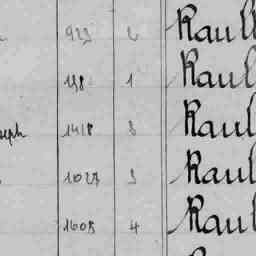 923 2 Raull
198 1 Raul
seph 1418 8 Raul
1027 3 Raul
1605 4 Raul